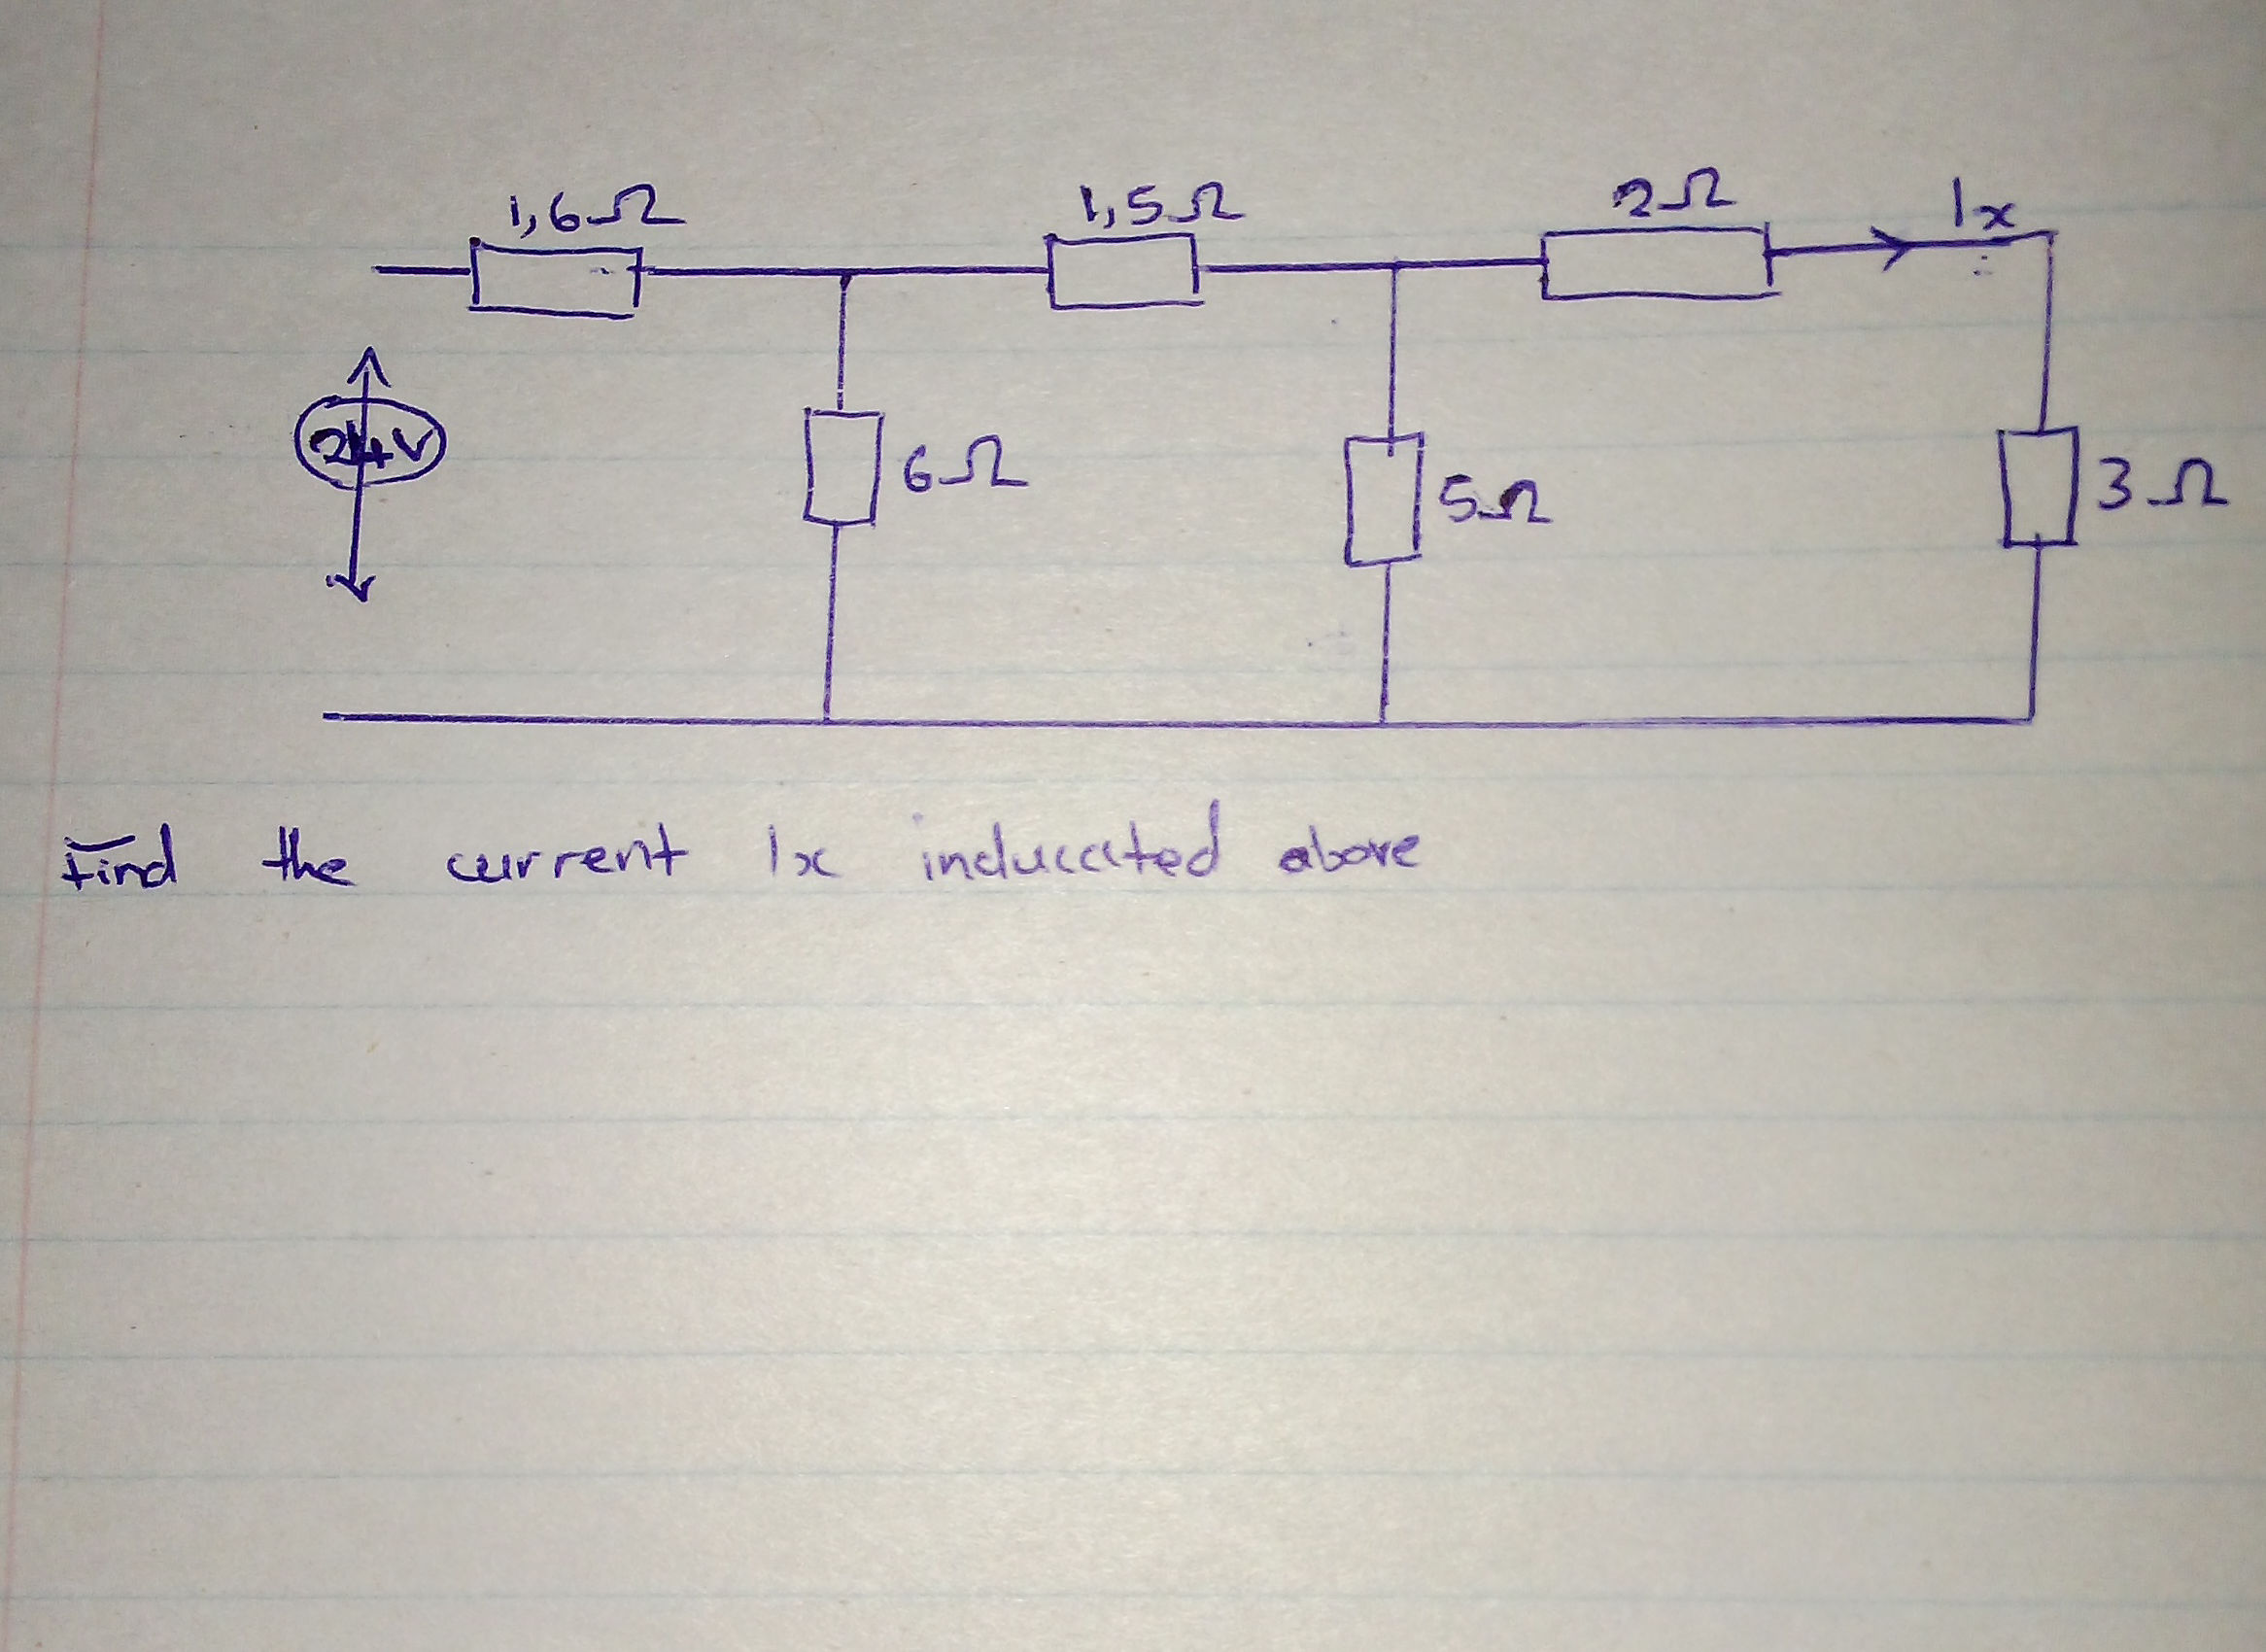 1,6Ω 1,5Ω 2Ω Ix
24V
6Ω 5Ω 3Ω
Find the current Ix inducated above